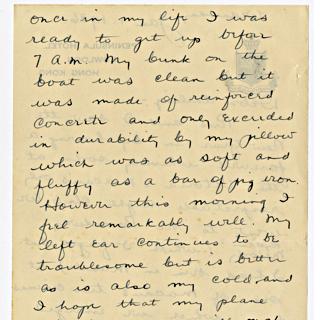 once in my life I was
ready to get up before
7 A.M. My bunk on the
boat was clean but it
was made of reinforced
concrete and only exceeded
in durability by my pillow
which was as soft and
fluffy as a bar of pig iron.
However this morning I
feel remarkably well. My
left ear continues to be
troublesome but is better
as is also my cold, and
I hope that my plane